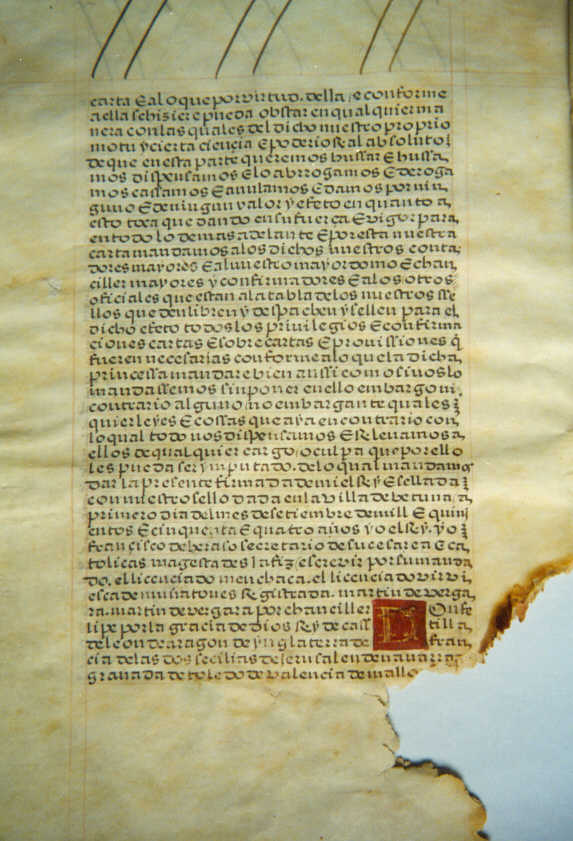 carta E a lo que por virtud. della / e conforme
a ella se hiziere pueda obstar en qual quier ma
nera con las quales del dicho nuestro proprio
motu y cierta ciencia E poderio Real absoluto /
de que en esta parte queremos hussar E hussa,
mos dispensamos E lo abrrogamos E deroga
mos cassamos E anulamos E damos por nin,
guno E de ningun valor y efeto en quanto a,
esto toca que dando en su fuerça E vigor para,
en todo lo demas adelante E por esta nuestra
carta mandamos a los dichos nuestros conta,
dores mayores E al nuestro mayordomo E chan,
ciller mayores y confirmadores E a los otros
oficiales que estan a la tabla de los nuestros sse
llos que den libren y despachen y sellen para el
dicho efeto todos los privilegios E confirma
ciones cartas E sobre cartas E provissiones q
fueren necesarias conforme a lo que la dicha,
princessa mandare bien anssi como si nos lo
mandassemos sin poner en ello embargo ni,
contrario alguno / no embargante quales q
quier leyes E cossas que aya en contrario con
lo qual todo nos dispensamos E Relevamos a,
ellos de qual quier cargo / o culpa que por ello
les pueda ser ynputado. de lo qual mandamos
dar la presente firmada de mi el Rey E sellada
con nuestro sello dada en la villa de betun / a,
primero dia del mes de setiembre de mill E quini
entos E cinquenta E quatro años yo el Rey. yo
françisco de heraso secretario de su cesarea E ca
tolicas magestades la fiz / escrevir por su manda
do. el licenciado menchaca. el licenciado virvi
esca de muñatones Registrada. martin de verga
ra. martin de vergara por chanciller Don fe
lipe por la gracia de dios Rey de cas tilla,
de leon de aragon de ynglaterra de fran
cia de las dos secilias de jerusalen de navarra
granada de toledo de valencia de mallo